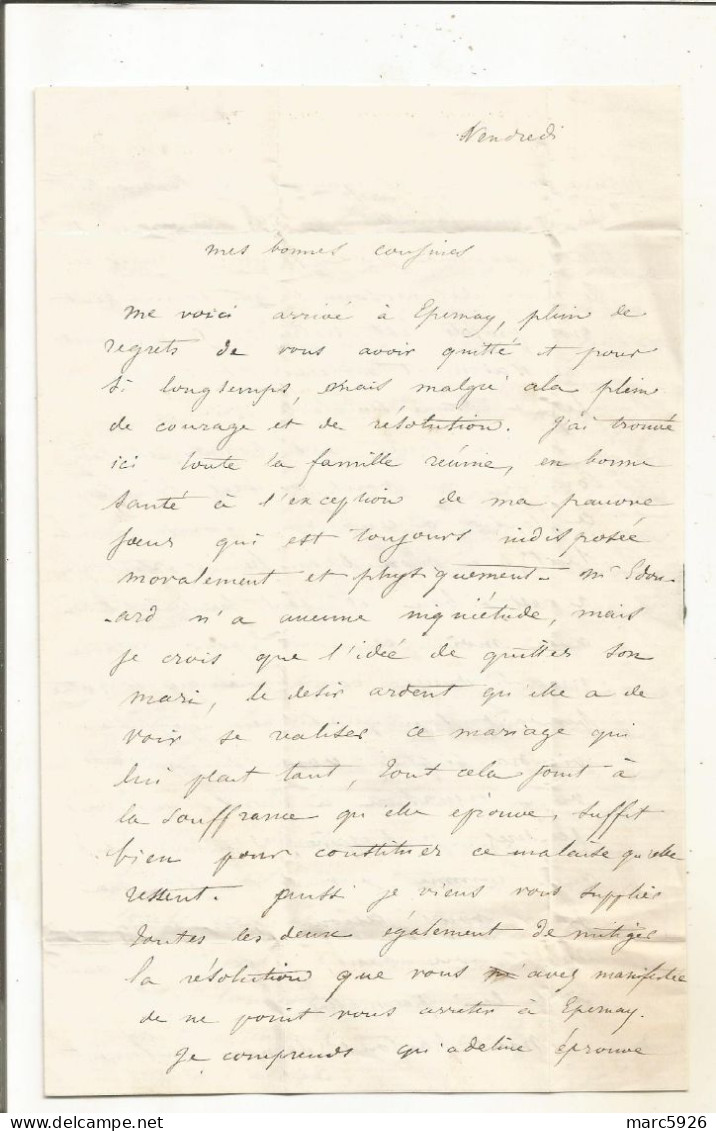 Vendredi
mes bonnes cousines
me voici arrivé à Epernay, plein de
regrets de vous avoir quitté et pour
si longtemps, mais malgré cela plein
de courage et de résolution. J'ai trouvé
ici toute la famille réunie, en bonne
santé à l'exception de ma pauvre
soeur qui est toujours indisposée
moralement et physiquement. Mr Edou-
-ard n'a aucune inquiétude, mais
je crois que l'idée de quitter son
mari, le desir ardent qu'elle a de
voir se realiser ce mariage qui
lui plait tant, tout cela joint à
la souffrance qu'elle éprouve, suffit
bien pour constituer ce malaise qu'elle
ressent. aussi je viens vous supplier
toutes les deux également de mitiger
la résolution que vous avez manifestée
de ne point vous arreter à Epernay.
Je comprends qu'adeline éprouve
marc5926